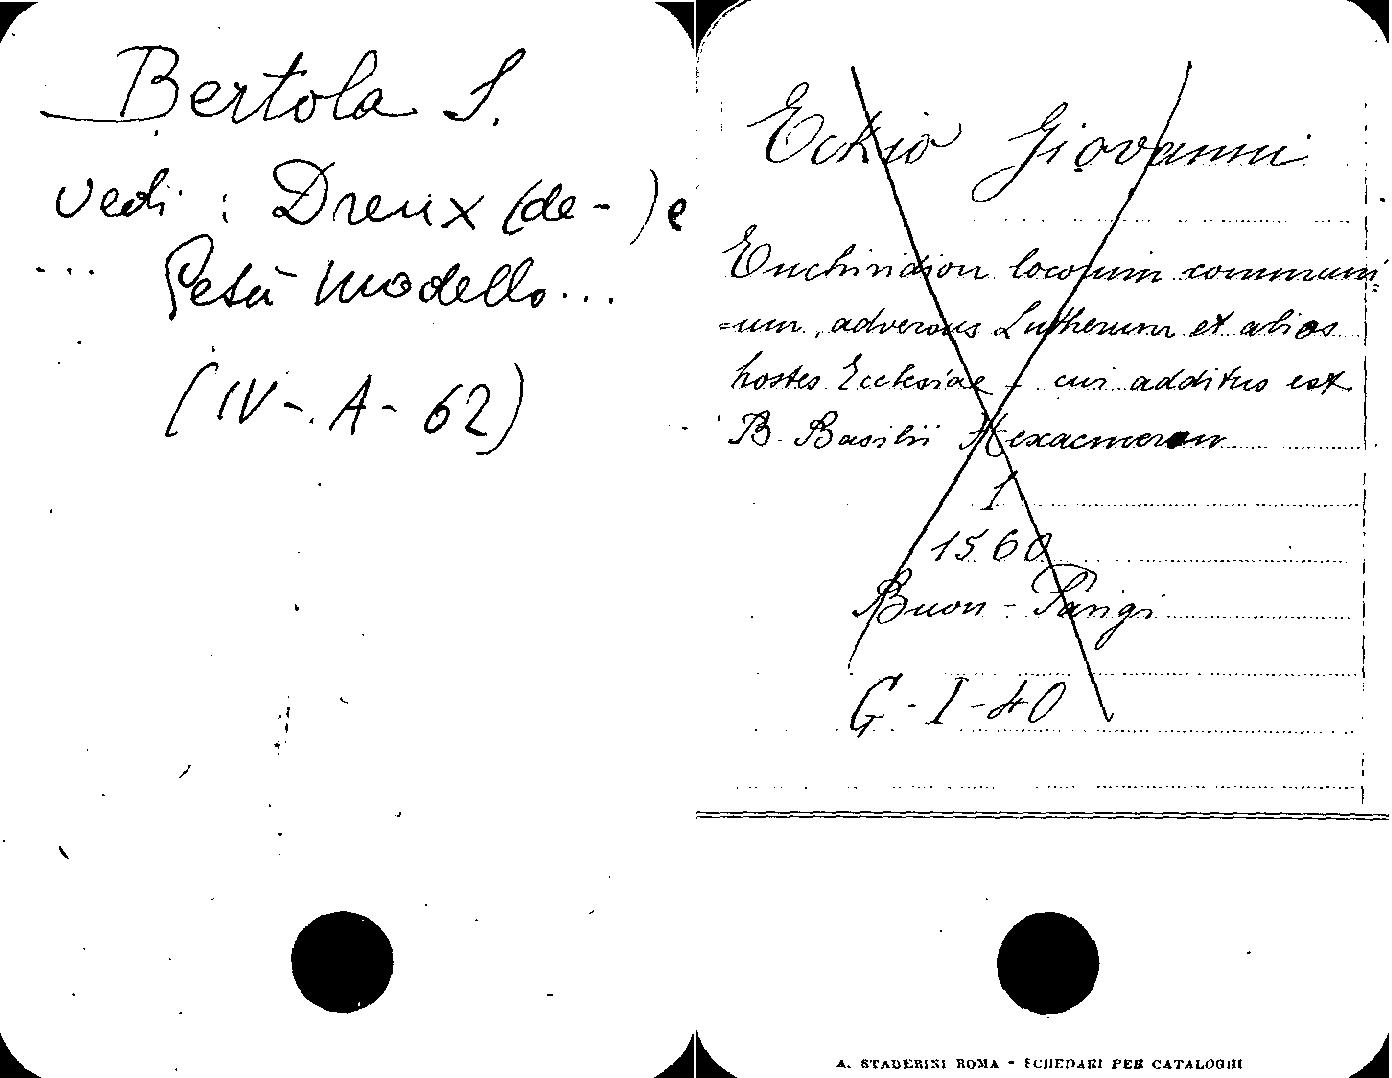 Bertola S.
vedi : Dreux (de-) e
... Gesù modello...
(IV-. A- 62)
Eckio Giovanni
Enchiridion locorum communi
=um, adversus Lutherum et alios
hostes Ecclesiae - cui additus est
B. Basilii Hexaemeron
1
1560
Buon - Parigi
G - I - 40
A. STADERINI ROMA - SCHEDARI PER CATALOGHI